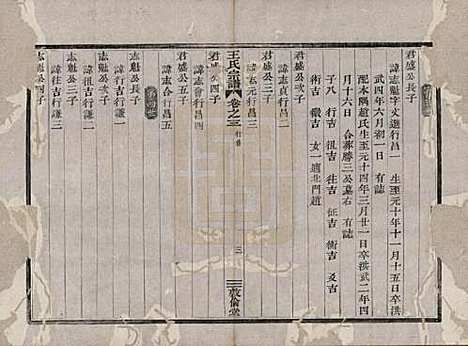 君盛公長子
諱志魁字文選行昌一 生至元十年十一月十五日卒洪
武四年六月初一日 有誌
配本隅趙氏生至元十四年三月廿一日卒洪武二年四
月十六日 合葬勝三公墓右 有誌
子八 行吉 祖吉 往吉 征吉 衛吉 㕛吉
術吉 徵吉 女一適北門趙
君盛公次子
諱志貞行昌二
君盛公三子
諱志元行昌三
王氏宗譜 卷之三 行昌 三 敦倫堂
君盛公四子
諱志會行昌四
君盛公五子
諱志合行昌五
志魁公長子
諱行吉行謙一
志魁公次子
諱祖吉行謙二
志魁公三子
諱往吉行謙三
志魁公四子